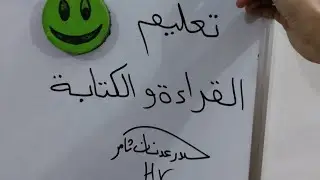 تعليم
القراءة و الكتابة
عدنان ثامر